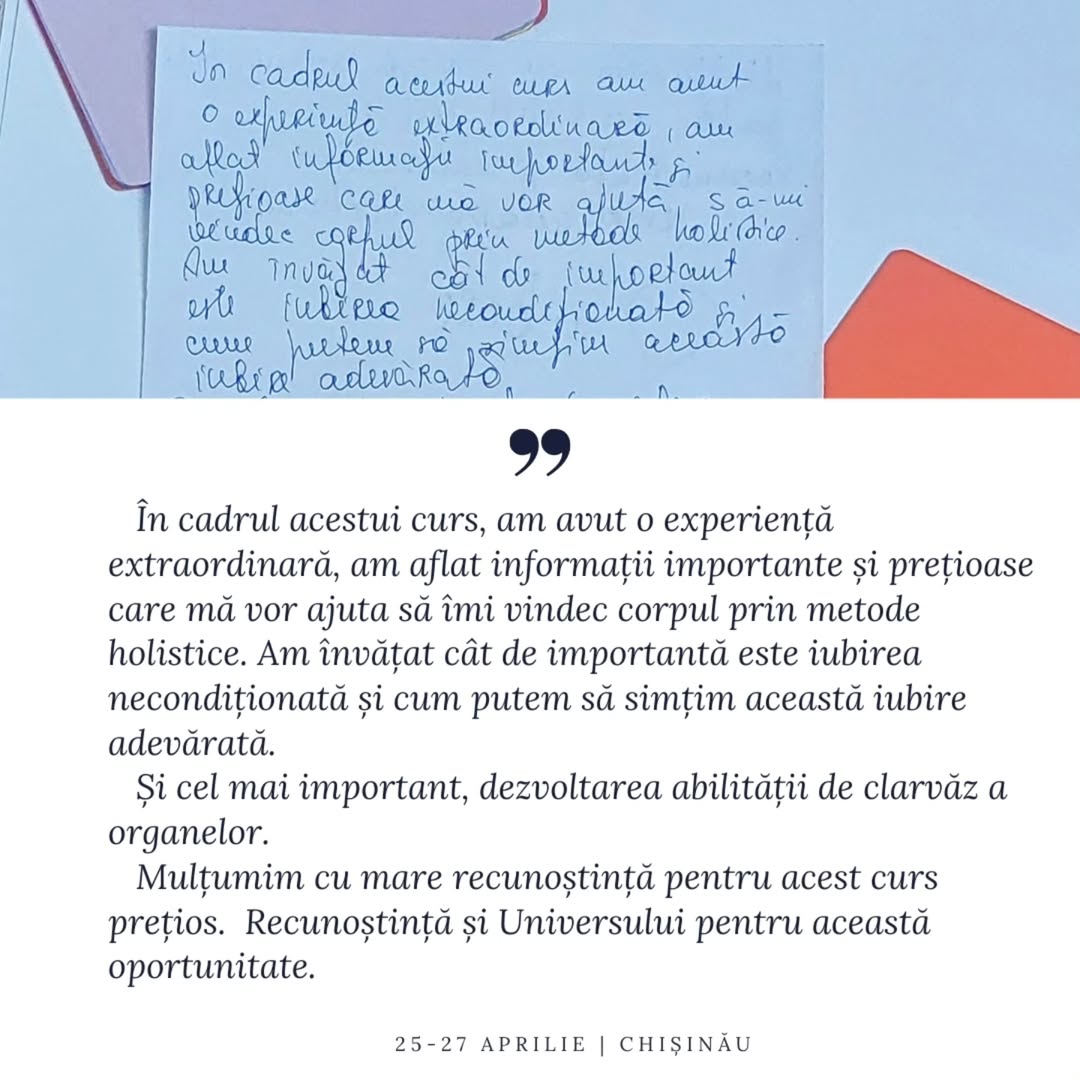 În cadrul acestui curs am avut
o experiență extraordinară, am
aflat informații importante și
prețioase care mă vor ajuta, să-mi
vindec corpul prin metode holistice.
Am învățat cât de important
este iubirea necondiționată și
cum putem să simțim această
iubire adevărată.
”
În cadrul acestui curs, am avut o experiență
extraordinară, am aflat informații importante și prețioase
care mă vor ajuta să îmi vindec corpul prin metode
holistice. Am învățat cât de importantă este iubirea
necondiționată și cum putem să simțim această iubire
adevărată.
Și cel mai important, dezvoltarea abilității de clarvăz a
organelor.
Mulțumim cu mare recunoștință pentru acest curs
prețios. Recunoștință și Universului pentru această
oportunitate.
25-27 APRILIE | CHIȘINĂU